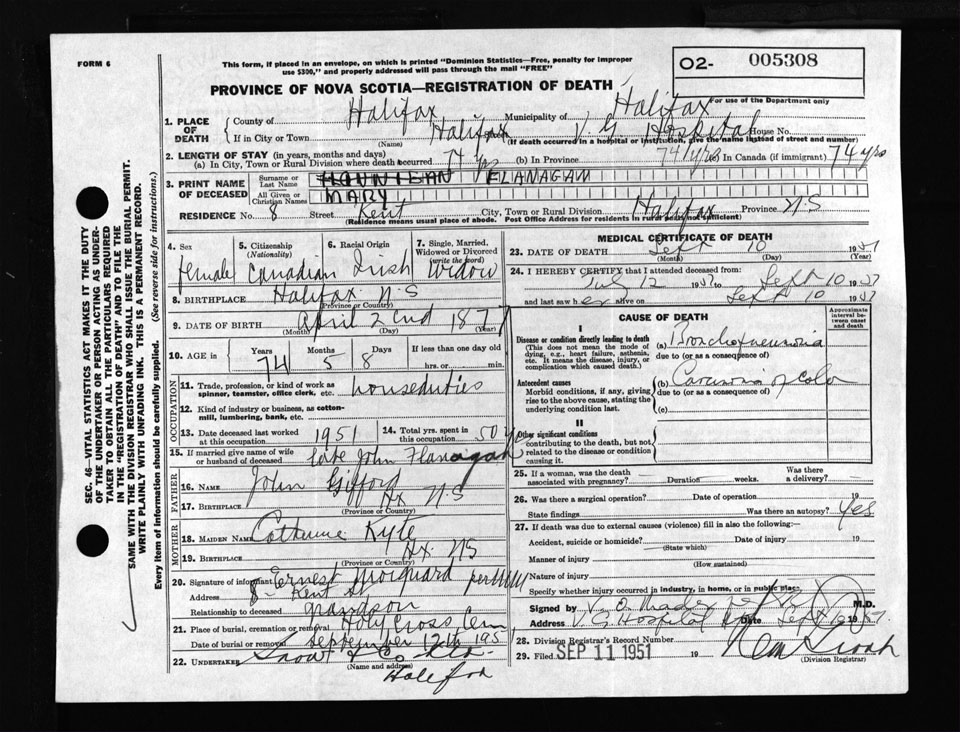 FORM 6
This form, if placed in an envelope, on which is printed "Dominion Statistics—Free, penalty for improper
use $300," and properly addressed will pass through the mail "FREE"
O2- 005308
For use of the Department only
PROVINCE OF NOVA SCOTIA—REGISTRATION OF DEATH
1. PLACE OF DEATH
County of Halifax Municipality of Halifax
If in City or Town Halifax V. G. Hospital House No.
(Name) (If death occurred in a hospital or institution, give the name instead of street and number)
2. LENGTH OF STAY (in years, months and days)
(a) In City, Town or Rural Division where death occurred 74 yrs (b) In Province 74 yrs In Canada (if immigrant) 74 yrs
3. PRINT NAME OF DECEASED
Surname or Last Name FLANAGAN
All Given or Christian Names MARY
RESIDENCE No. 8 Street Kent City, Town or Rural Division Halifax Province N.S
(Residence means usual place of abode. Post Office Address for residents in rural parts not sufficient)
4. Sex female
5. Citizenship (Nationality) Canadian
6. Racial Origin Irish
7. Single, Married, Widowed or Divorced (write the word) Widow
8. BIRTHPLACE Halifax N.S
(Province or Country)
9. DATE OF BIRTH April 22nd 187
(Month) (Day) (Year)
10. AGE in Years 74 Months 5 Days 8 If less than one day old hrs. or min.
OCCUPATION
11. Trade, profession, or kind of work as spinner, teamster, office clerk, etc. houseduties
12. Kind of industry or business, as cotton-mill, lumbering, bank, etc.
13. Date deceased last worked at this occupation 1951
14. Total yrs. spent in this occupation 50 yrs
15. If married give name of wife or husband of deceased late John Flanagan
FATHER
16. Name John Gifford
17. Birthplace Hx N.S
(Province or Country)
MOTHER
18. Maiden Name Catherine Kyte
19. Birthplace Hx. NS
(Province or Country)
20. Signature of informant Ernest per
Address 8 - Kent St
Relationship to deceased grandson
21. Place of burial, cremation or removal Holy Cross Cem
Date of burial or removal September 12th 195
22. UNDERTAKER Snow & Co Ltd.
(Name and address)
Halifax
MEDICAL CERTIFICATE OF DEATH
23. DATE OF DEATH Sept 10 1951
(Month) (Day) (Year)
24. I HEREBY CERTIFY that I attended deceased from:
July 12 1951 to Sept 10 1951
and last saw her alive on Sept 10 1951
CAUSE OF DEATH
Approximate interval between onset and death
I
Disease or condition directly leading to death
(This does not mean the mode of dying, e.g., heart failure, asthenia, etc. It means the disease, injury, or complication which caused death.)
(a) Bronchopneumonia
due to (or as a consequence of)
Antecedent causes
Morbid conditions, if any, giving rise to the above cause, stating the underlying condition last.
(b) Carcinoma of colon
due to (or as a consequence of)
(c)
II
Other significant conditions
contributing to the death, but not related to the disease or condition causing it.
25. If a woman, was the death associated with pregnancy? Duration weeks. Was there a delivery?
26. Was there a surgical operation? Date of operation 19
State findings Was there an autopsy? Yes
27. If death was due to external causes (violence) fill in also the following:—
Accident, suicide or homicide? Date of injury 19
(State which)
Manner of injury
(How sustained)
Nature of injury
Specify whether injury occurred in industry, in home, or in public place
Signed by V. O. Mader M.D.
Address V. G. Hospital Date Sept 10 1951.
28. Division Registrar's Record Number
29. Filed SEP 11 1951 19
(Division Registrar)
SEC. 46—VITAL STATISTICS ACT MAKES IT THE DUTY
OF THE UNDERTAKER OR PERSON ACTING AS UNDER-
TAKER TO OBTAIN ALL THE PARTICULARS REQUIRED
IN THE "REGISTRATION OF DEATH" AND TO FILE THE
SAME WITH THE DIVISION REGISTRAR WHO SHALL ISSUE THE BURIAL PERMIT.
WRITE PLAINLY WITH UNFADING INK. THIS IS A PERMANENT RECORD.
Every item of information should be carefully supplied. (See reverse side for instructions.)